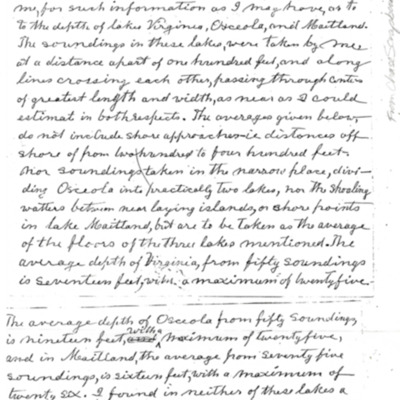 me, for such information as I may have, as to
to the depth of lakes Virginia, Osceola, and Maitland.
The soundings in these lakes, were taken by mee
at a distance apart of one hundred feet, and along
lines crossing each other, passing through centers
of greatest length and width, as near as I could
estimat in both respects. The averages given below,
do not include shore approaches—ie distances off
shore of from two hundred to four hundred feet
nor soundings taken in the narrow place, divi-
ding Osceola into practically two lakes, nor the shoaling
watters between near laying islands, or shore points
in lake Maitland, but are to be taken as the average
of the floors of the three lakes mentioned. The
average depth of Virginia, from fifty soundings
is seventeen feet, with a maximum of twenty five.
The average depth of Osceola from fifty soundings
is nineteen feet, with a maximum of twenty five,
and in Maitland, the average from seventy five
soundings, is sixteen feet, with a maximum of
twenty six. I found in neither of these lakes a
From